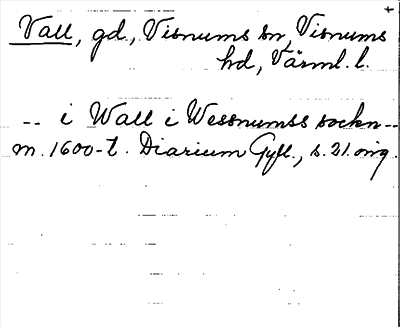 Vall, gd., Visnums sn, Visnums
hd, Värml. l.
-- i Wall i Wessnumss sockn--
m. 1600-t. Diarium Gyll., s. 21. orig.